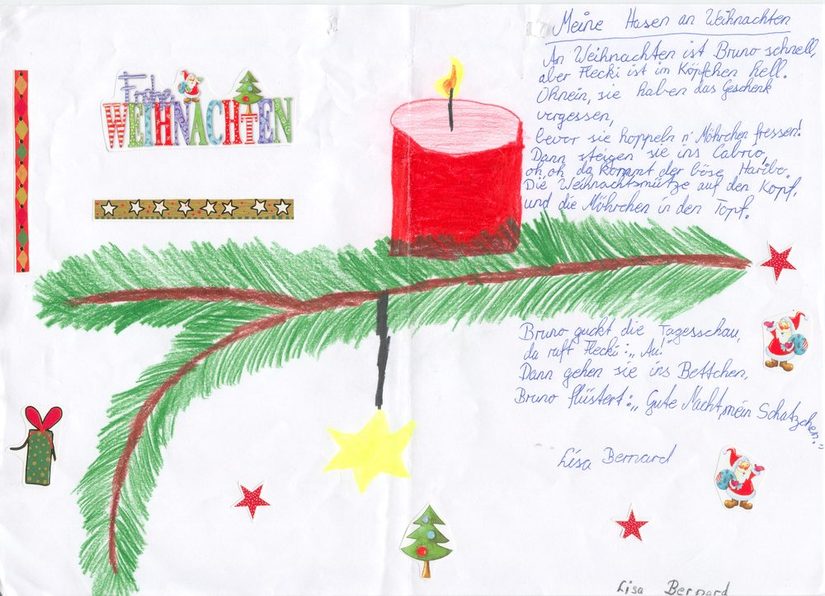 Frohe
WEIHNACHTEN
Meine Hasen an Weihnachten
An Weihnachten ist Bruno schnell,
aber Flecki ist im Köpfchen hell.
Ohnein, sie haben das Geschenk
vergessen,
bevor sie hoppeln n' Möhrchen fressen!
Dann steigen sie ins Cabrio,
oh, oh da kommt der böse Haribo.
Die Weihnachtsmütze auf den Kopf.
und die Möhrchen in den Topf.
Bruno guckt die Tagesschau,
da ruft Flecki: „Au!"
Dann gehen sie ins Bettchen,
Bruno flüstert: „Gute Nacht, mein Schatzchen."
Lisa Bernard
Lisa Bernard